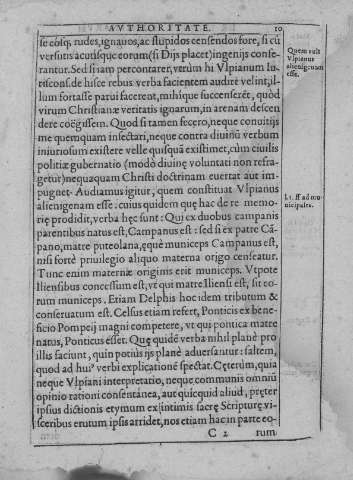 AVTHORITATE. 10
se eosq́; rudes, ignauos, ac stupidos censendos fore, si cũ
versutis acutisque eorum (si Dijs placet) ingenijs confe-
rantur. Sed si iam percontarer, verùm hi Vlpianum Iu-
riscons. de hisce rebus verba facientem audire velint, il-
lum fortasse parui facerent, mihique succenserẽt, quòd
virum Christianæ veritatis ignarum, in arenam descen
dere coëgissem. Quod si tamen fecero, neque conuitijs
me quemquam insectari, neque contra diuinũ verbum
iniuriosum existere velle quisquã existimet, cùm ciuilis
politiæ gubernatio (modò diuinę voluntati non refra-
getur) nequaquam Christi doctrinam euertat aut im-
pugnet. Audiamus igitur, quem constituat Vlpianus
alienigenam esse: cuius quidem quę hac de re memo-
rię prodidit, verba hęc sunt: Qui ex duobus campanis
parentibus natus est, Campanus est: sed si ex patre Cã-
pano, matre puteolana, ęquè municeps Campanus est,
nisi fortè priuilegio aliquo materna origo censeatur.
Tunc enim maternæ originis erit municeps. Vtpote
Iliensibus concessum est, vt qui matre Iliensi est, sit eo-
rum municeps. Etiam Delphis hoc idem tributum &
conseruatum est. Celsus etiam refert, Ponticis ex bene-
ficio Pompeij magni competere, vt qui pontica matre
natus, Ponticus esset. Quę quidẽ verba nihil planè pro
illis faciunt, quin potiùs ijs planè aduersantur: saltem,
quod ad huiꝰ verbi explicationẽ spectat. Cęterùm, quia
neque Vlpiani interpretatio, neque communis omniũ
opinio rationi consentanea, aut quicquid aliud, pręter
ipsius dictionis etymum ex intimis sacrę Scripturę vi-
sceribus erutum ipsis arridet, nos etiam hac in parte eo-
C 2 rum
Quem velit
Vlpianus
alienigenam
esse.
L. 1. ff. ad mu
nicipalem.